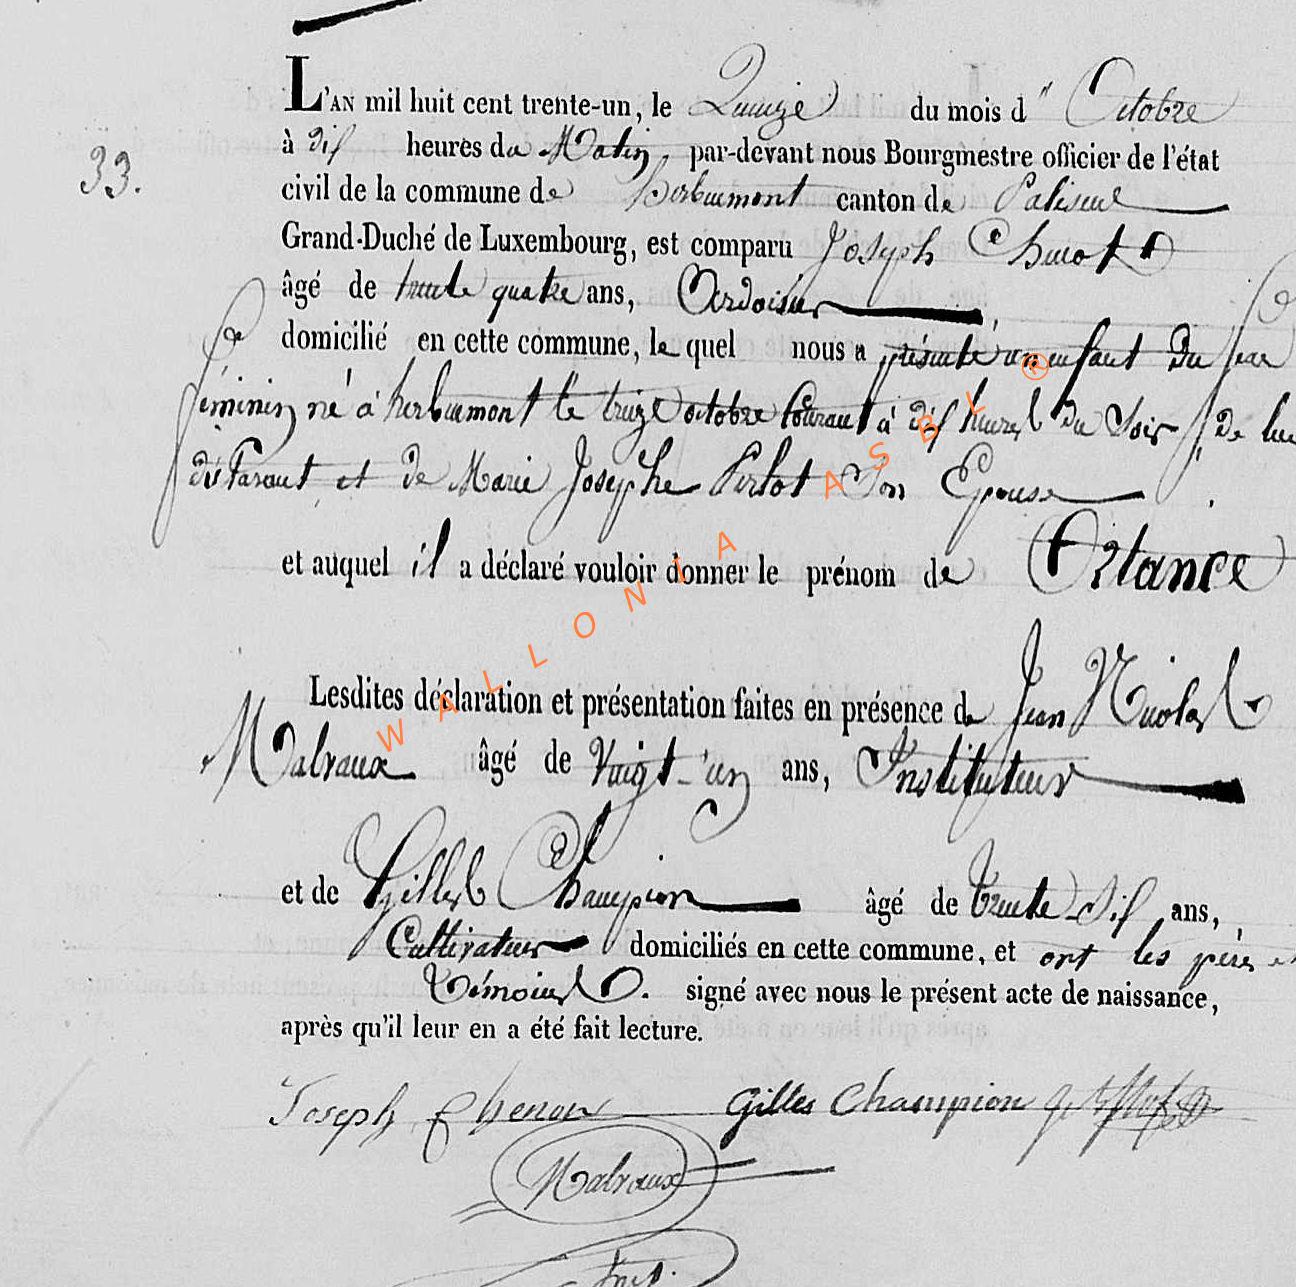 L'AN mil huit cent trente-un, le Quinze du mois d'' Octobre
33.
à dix heures du Matin, par-devant nous Bourgmestre officier de l'état
civil de la commune de herbuemont canton de Paliseul
Grand-Duché de Luxembourg, est comparu Joseph
âgé de trente quatre ans, Ardoisier
domicilié en cette commune, lequel nous a présenté un enfant du sexe
féminin né à herbuemont le treize octobre Courant à dix heures du Soir, de lui
déclarant et de Marie Josephe Pirlot Son Epouse
et auquel il a déclaré vouloir donner le prénom de Ortance
Lesdites déclaration et présentation faites en présence de Jean Nicolas
Malvaux âgé de Vingt-un ans, Instituteur
et de Gilles Champion âgé de trente Six ans,
Cultivateur domiciliés en cette commune, et ont les père et
Témoins signé avec nous le présent acte de naissance,
après qu'il leur en a été fait lecture.
Joseph Gilles Champion
Malvaux
WALLONIA ASBL ®